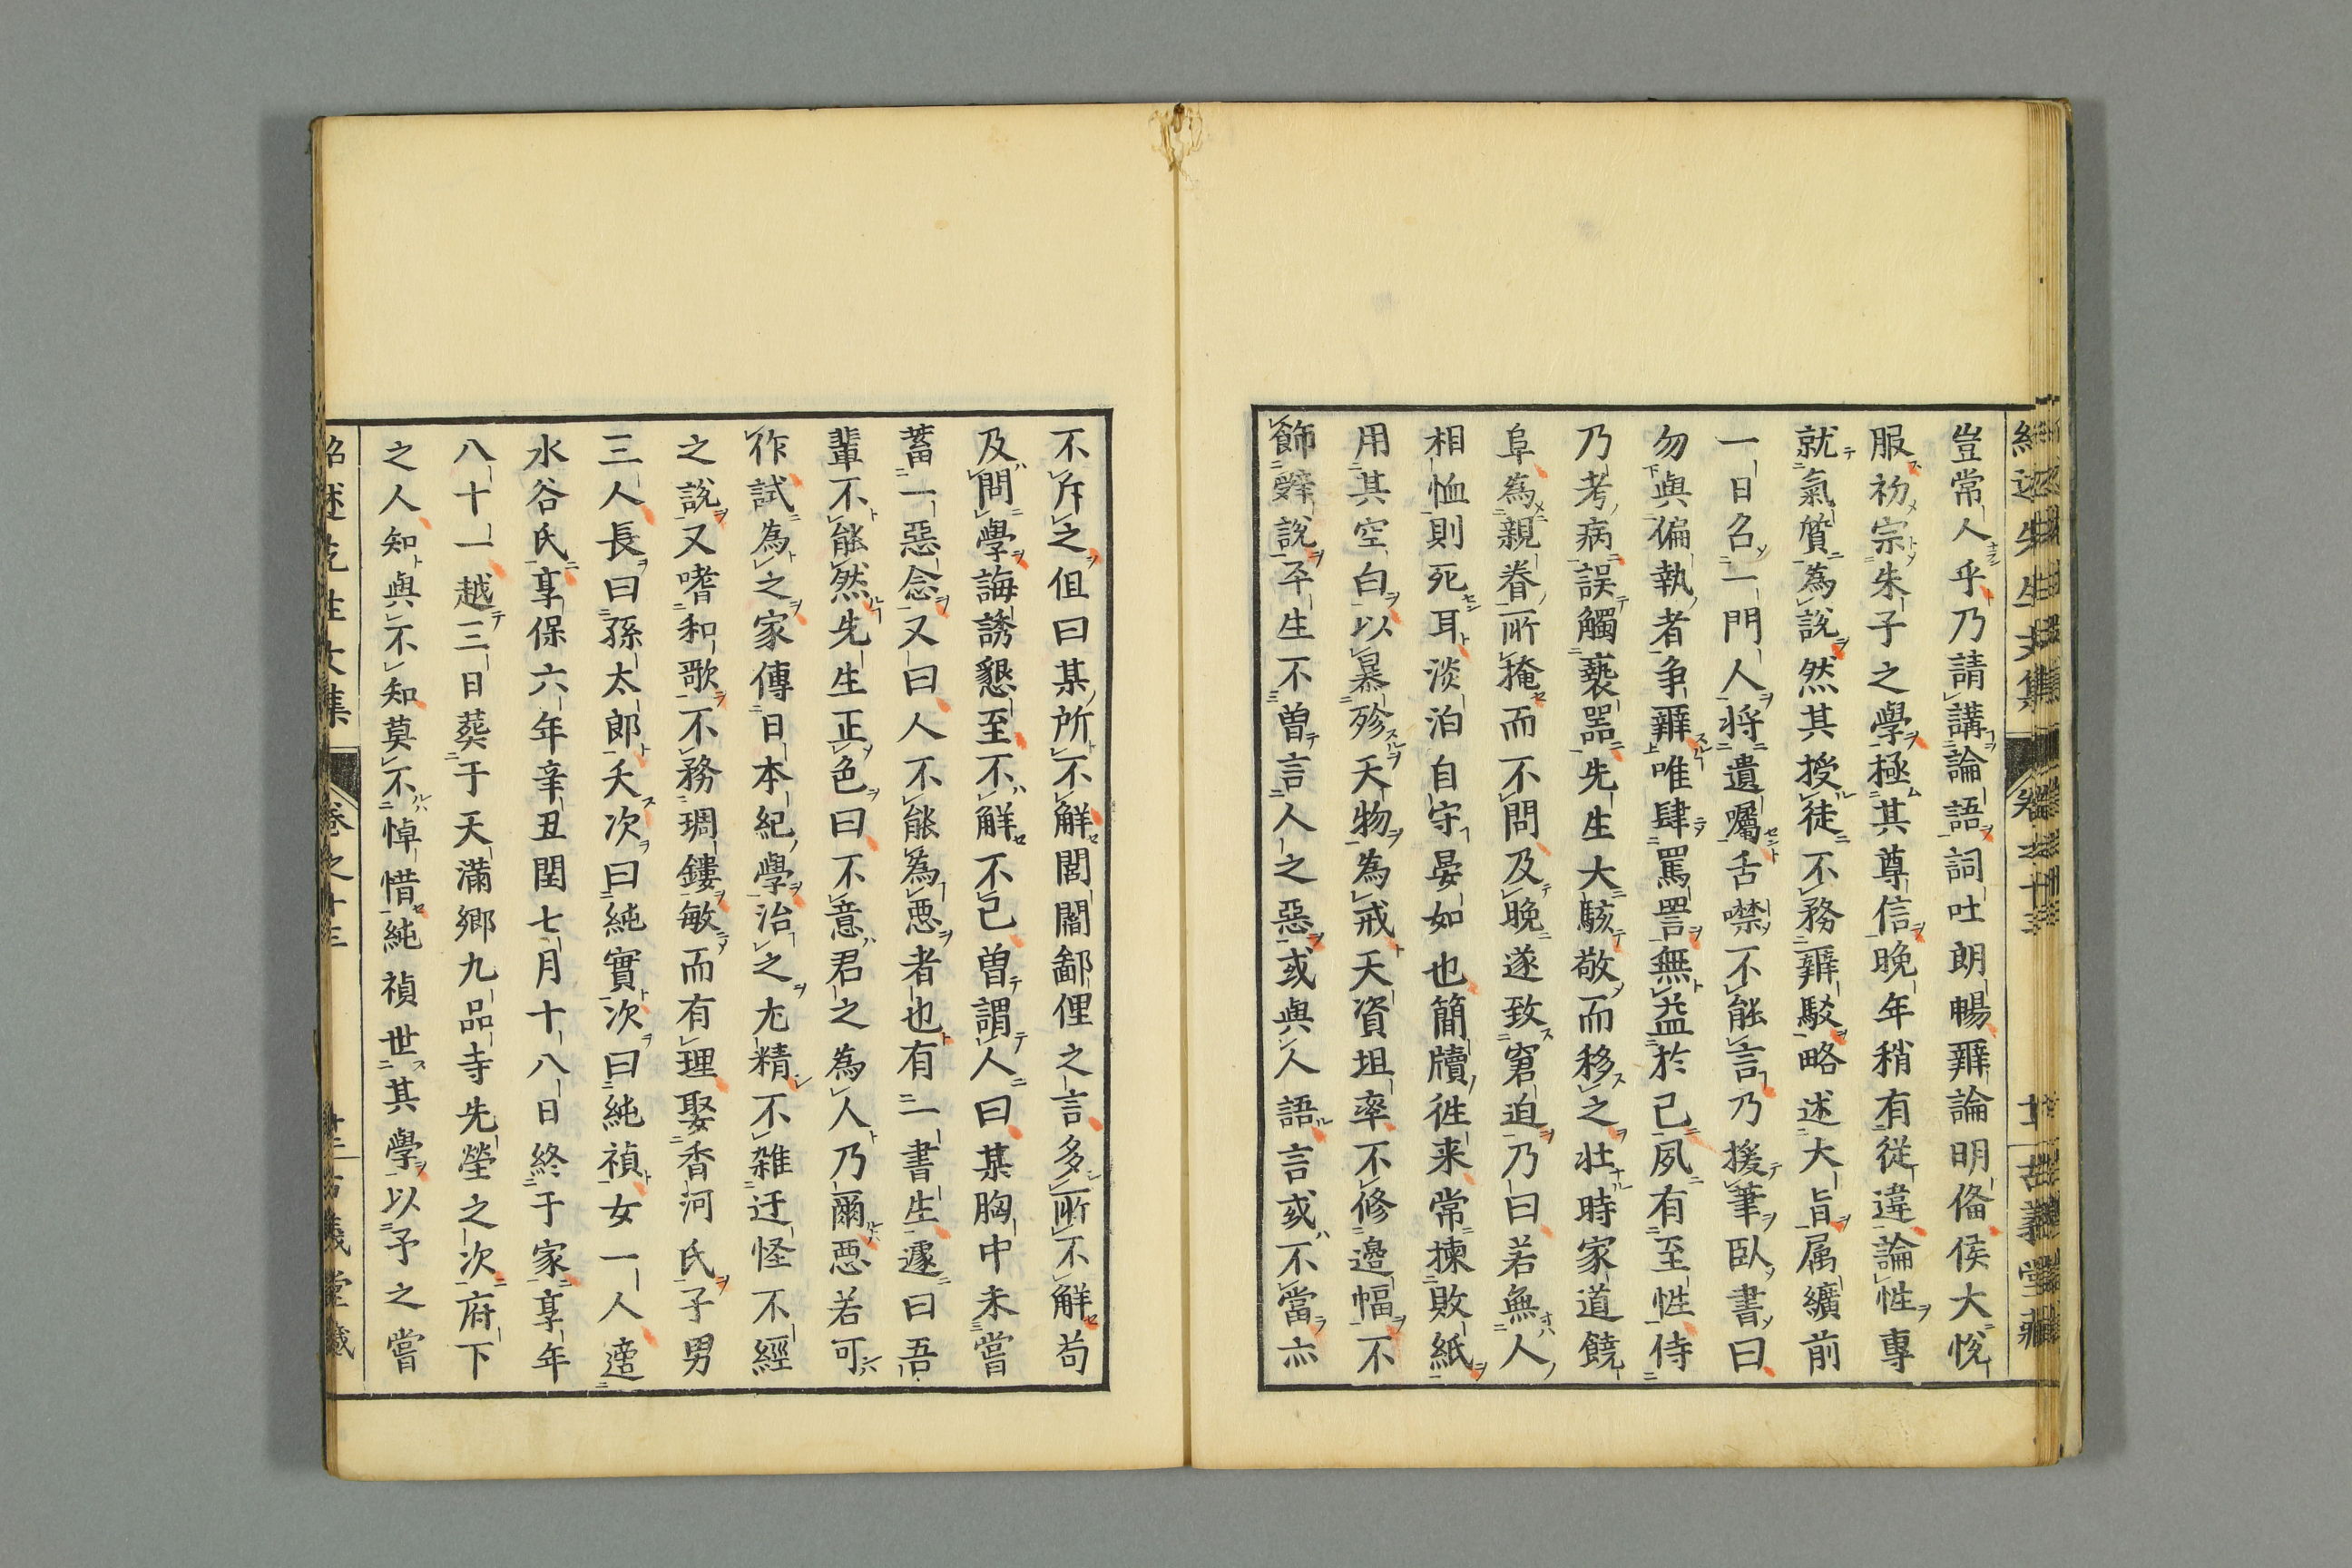 紹述先生文集 卷之十三 古義堂藏
豈常人乎乃請講論語詞吐朗暢辨論明俻侯大悅
服初宗朱子之學極其尊信晚年稍有從違論性專
就氣質為說然其授徒不務辨駁略述大旨属纊前
一日名一門人将遺囑舌噤不能言乃援筆臥書曰
勿與偏執者争辨唯肆罵詈無益於己夙有至性侍
乃考病誤觸褻器先生大駭敬而移之壮時家道饒
阜為親眷所掩而不問及晚遂致窘迫乃曰若無人
相恤則死耳淡泊自守晏如也簡牘徃来常揀敗紙
用其空白以暴殄天物為戒天資坦率不修邊幅不
飾辤說平生不曽言人之惡或與人語言或不當亦
不斥之但曰某所不解閭閻鄙俚之言多所不解苟
及問學誨誘懇至不解不已曽謂人曰某胸中未嘗
蓄一惡念又曰人不能為悪者也有一書生遽曰吾
輩不能然先生正色曰不意君之為人乃爾悪若可
作試為之家傳日本紀學治之尤精不雑迂怪不經
之說又嗜和歌不務琱鏤敏而有理娶香河氏子男
三人長曰孫太郎夭次曰純實次曰純禎女一人適
水谷氏享保六年辛丑閏七月十八日終于家享年
八十一越三日葬于天滿鄉九品寺先塋之次府下
之人知與不知莫不悼惜純禎世其學以予之嘗
紹述先生文集 卷之十三 古義堂藏